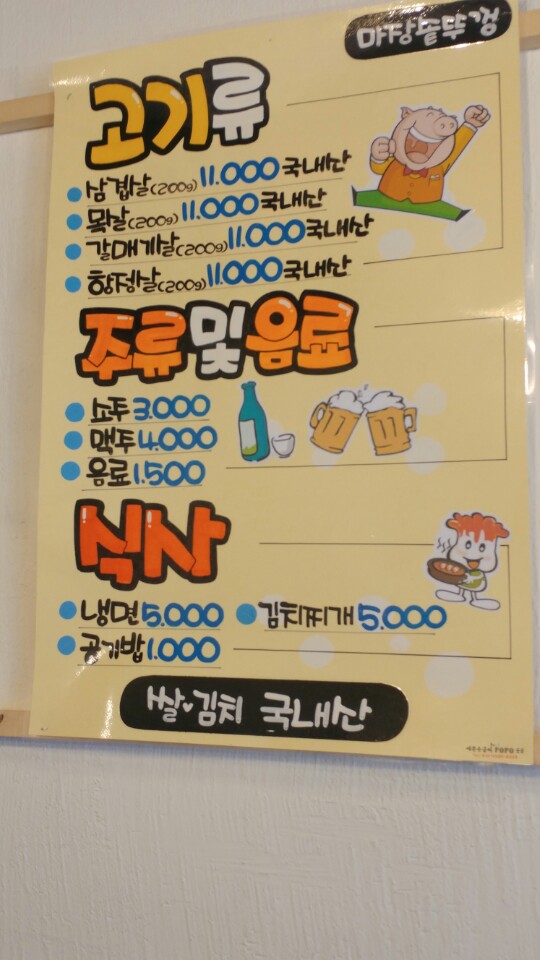 마당솥뚜껑
고기류
삼겹살(200g) 11.000 국내산
목살(200g) 11.000 국내산
갈매기살(200g) 11.000 국내산
항정살(200g) 11.000 국내산
주류 및 음료
소주 3.000
맥주 4.000
음료 1.500
식사
냉면 5.000 김치찌개 5.000
공기밥 1.000
쌀♥김치 국내산